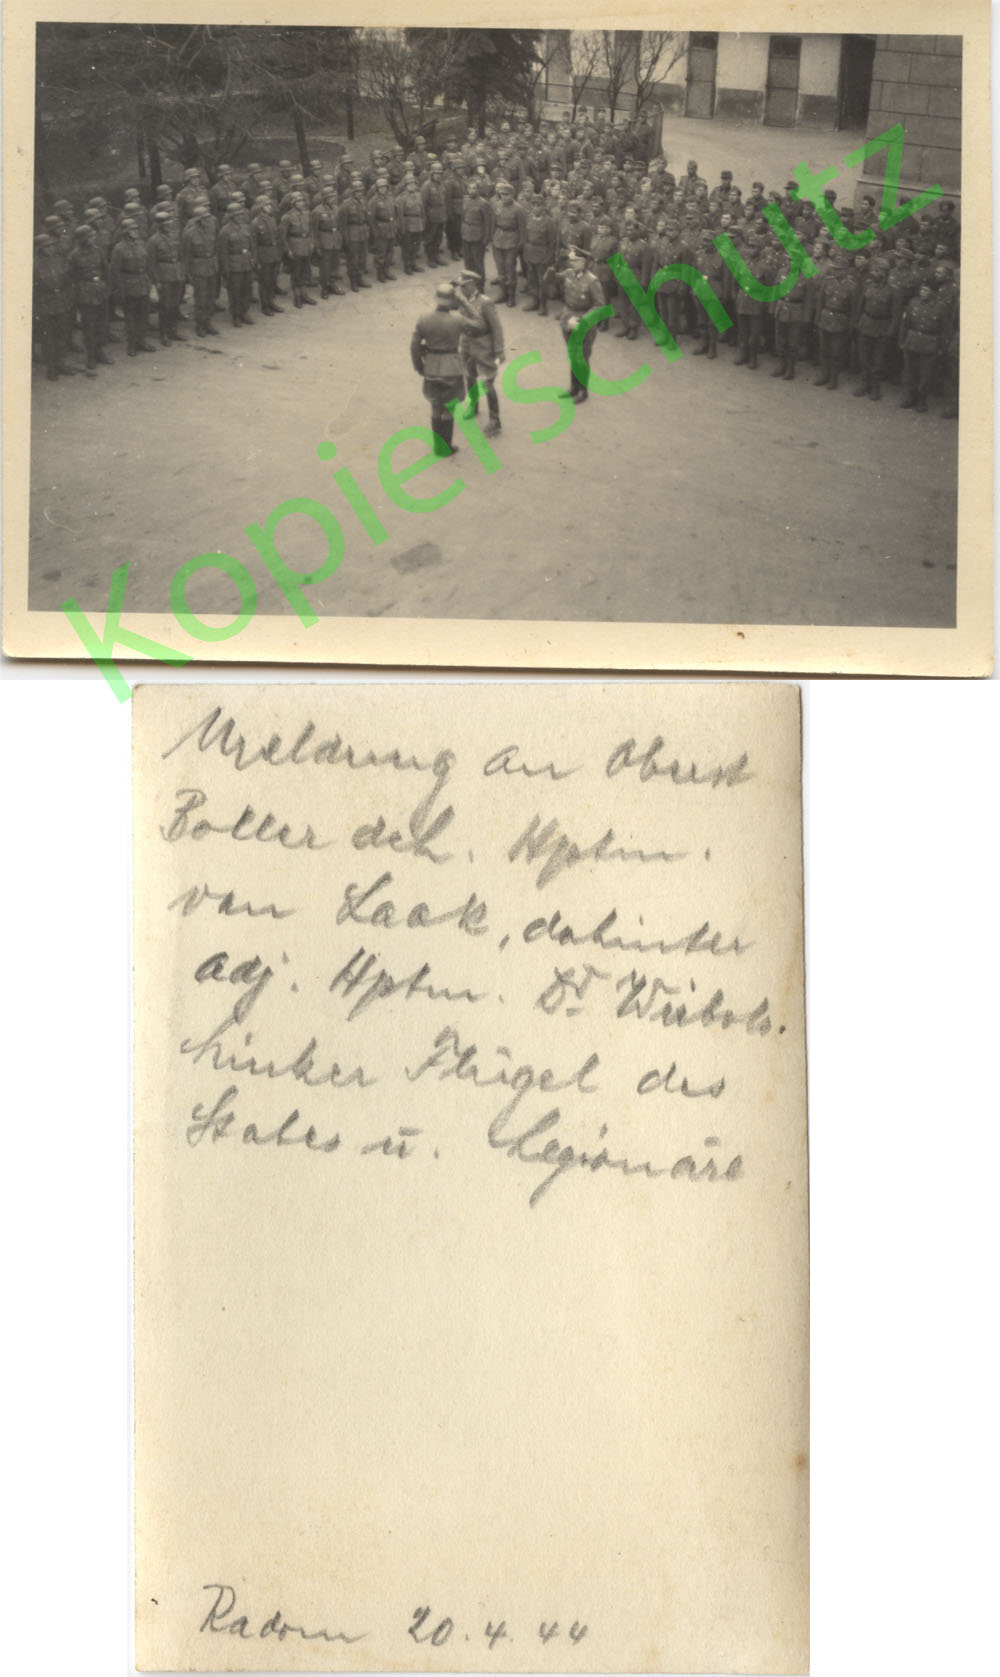 Kopierschutz
Meldung an Oberst
Boller dch. Hptm.
van Laak, dahinter
adj. Hptm. Dr.
linker Flügel des
Stabes u. Legionäre
Radom 20.4.44